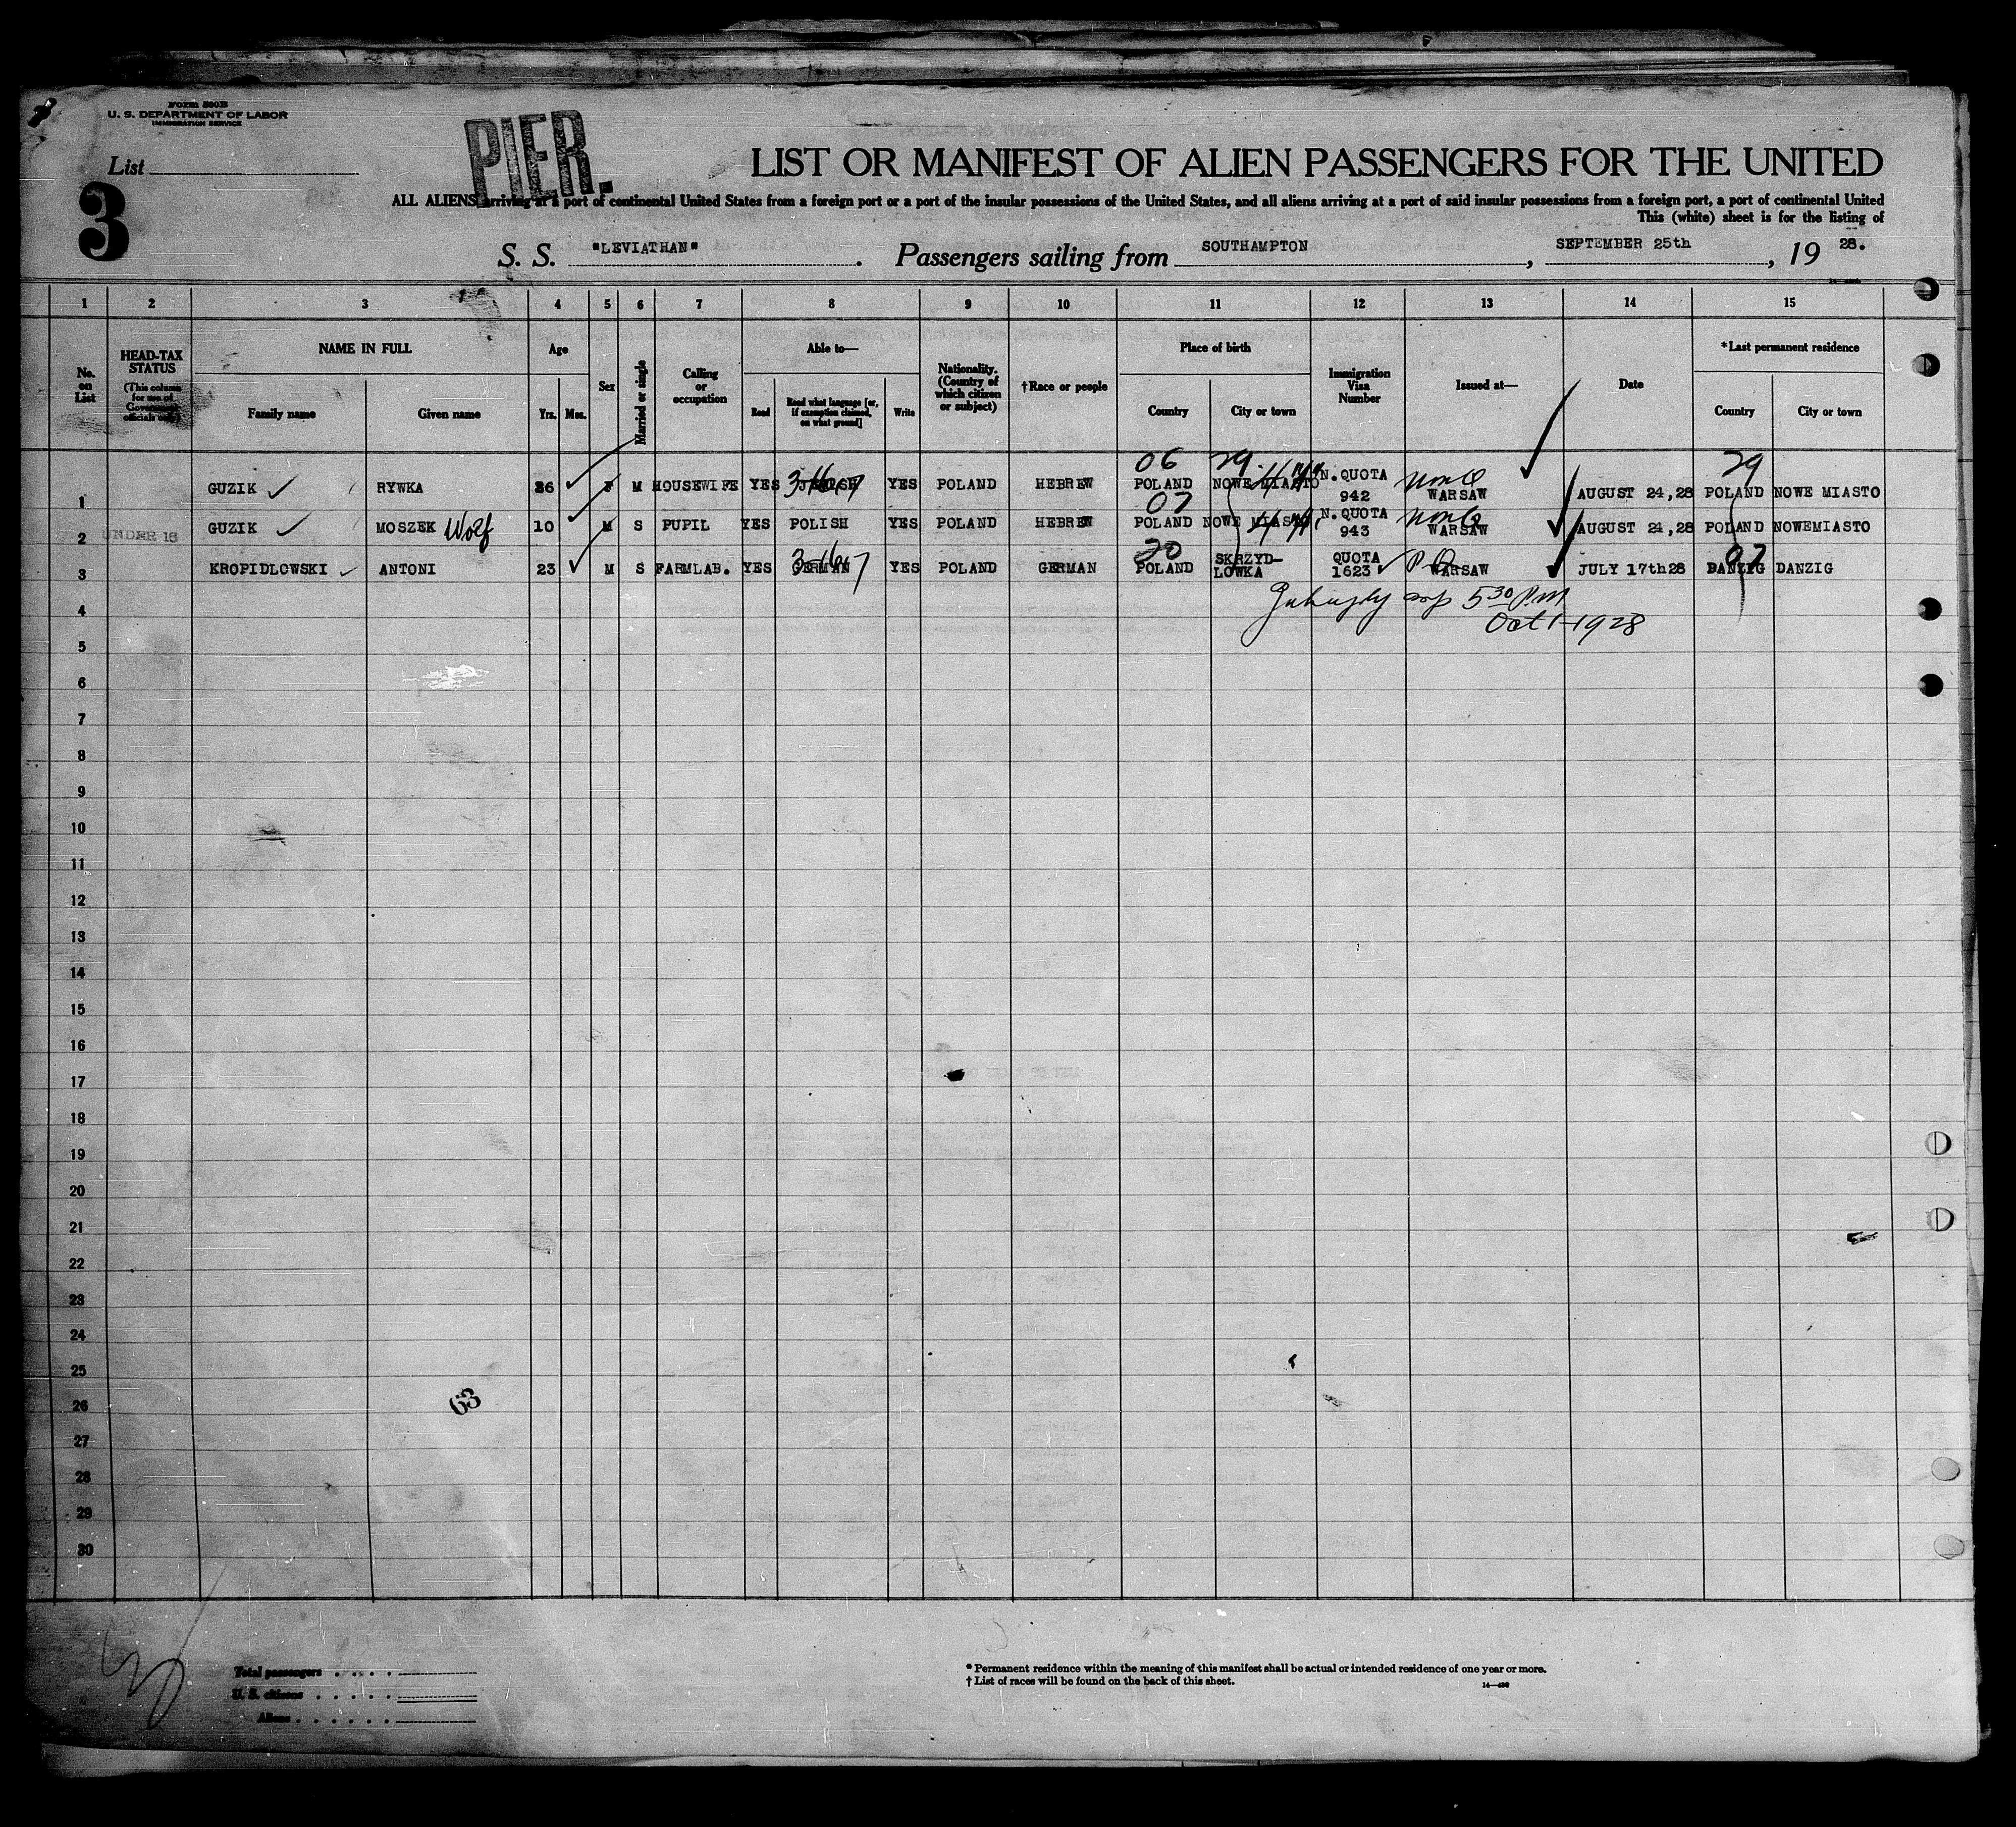 Form 500B
U. S. DEPARTMENT OF LABOR
IMMIGRATION SERVICE
PIER.
List
3
LIST OR MANIFEST OF ALIEN PASSENGERS FOR THE UNITED
ALL ALIENS arriving at a port of continental United States from a foreign port or a port of the insular possessions of the United States, and all aliens arriving at a port of said insular possessions from a foreign port, a port of continental United
This (white) sheet is for the listing of
S. S. "LEVIATHAN". Passengers sailing from SOUTHAMPTON, SEPTEMBER 25th, 19 28.
1 2 3 4 5 6 7 8 9 10 11 12 13 14 15
No. on List
HEAD-TAX STATUS (This column for use of Government officials only)
NAME IN FULL
Family name
Given name
Age
Yrs. Mos.
Sex
Married or single
Calling or occupation
Able to—
Read
Read what language [or, if exemption claimed, on what ground]
Write
Nationality. (Country of which citizen or subject)
†Race or people
Place of birth
Country
City or town
Immigration Visa Number
Issued at—
Date
*Last permanent residence
Country
City or town
06 29 29
1 GUZIK RYWKA 36 F M HOUSEWIFE YES YES POLAND HEBREW POLAND NOWE MIASTO N. QUOTA 942 WARSAW AUGUST 24,28 POLAND NOWE MIASTO
07
2 UNDER 16 GUZIK MOSZEK Wolf 10 M S PUPIL YES POLISH YES POLAND HEBREW POLAND NOWE MIASTO N. QUOTA 943 WARSAW AUGUST 24,28 POLAND NOWEMIASTO
20 07
3 KROPIDLOWSKI ANTONI 23 M S FARMLAB. YES GERMAN YES POLAND GERMAN POLAND SKRZYD-LOWKA QUOTA 1623 WARSAW JULY 17th28 DANZIG DANZIG
4 5 30 P.M
Oct 1-1928
5
6
7
8
9
10
11
12
13
14
15
16
17
18
19
20
21
22
23
24
25
26
63
27
28
29
30
Total passengers
U. S. citizens
Aliens
* Permanent residence within the meaning of this manifest shall be actual or intended residence of one year or more.
† List of races will be found on the back of this sheet.